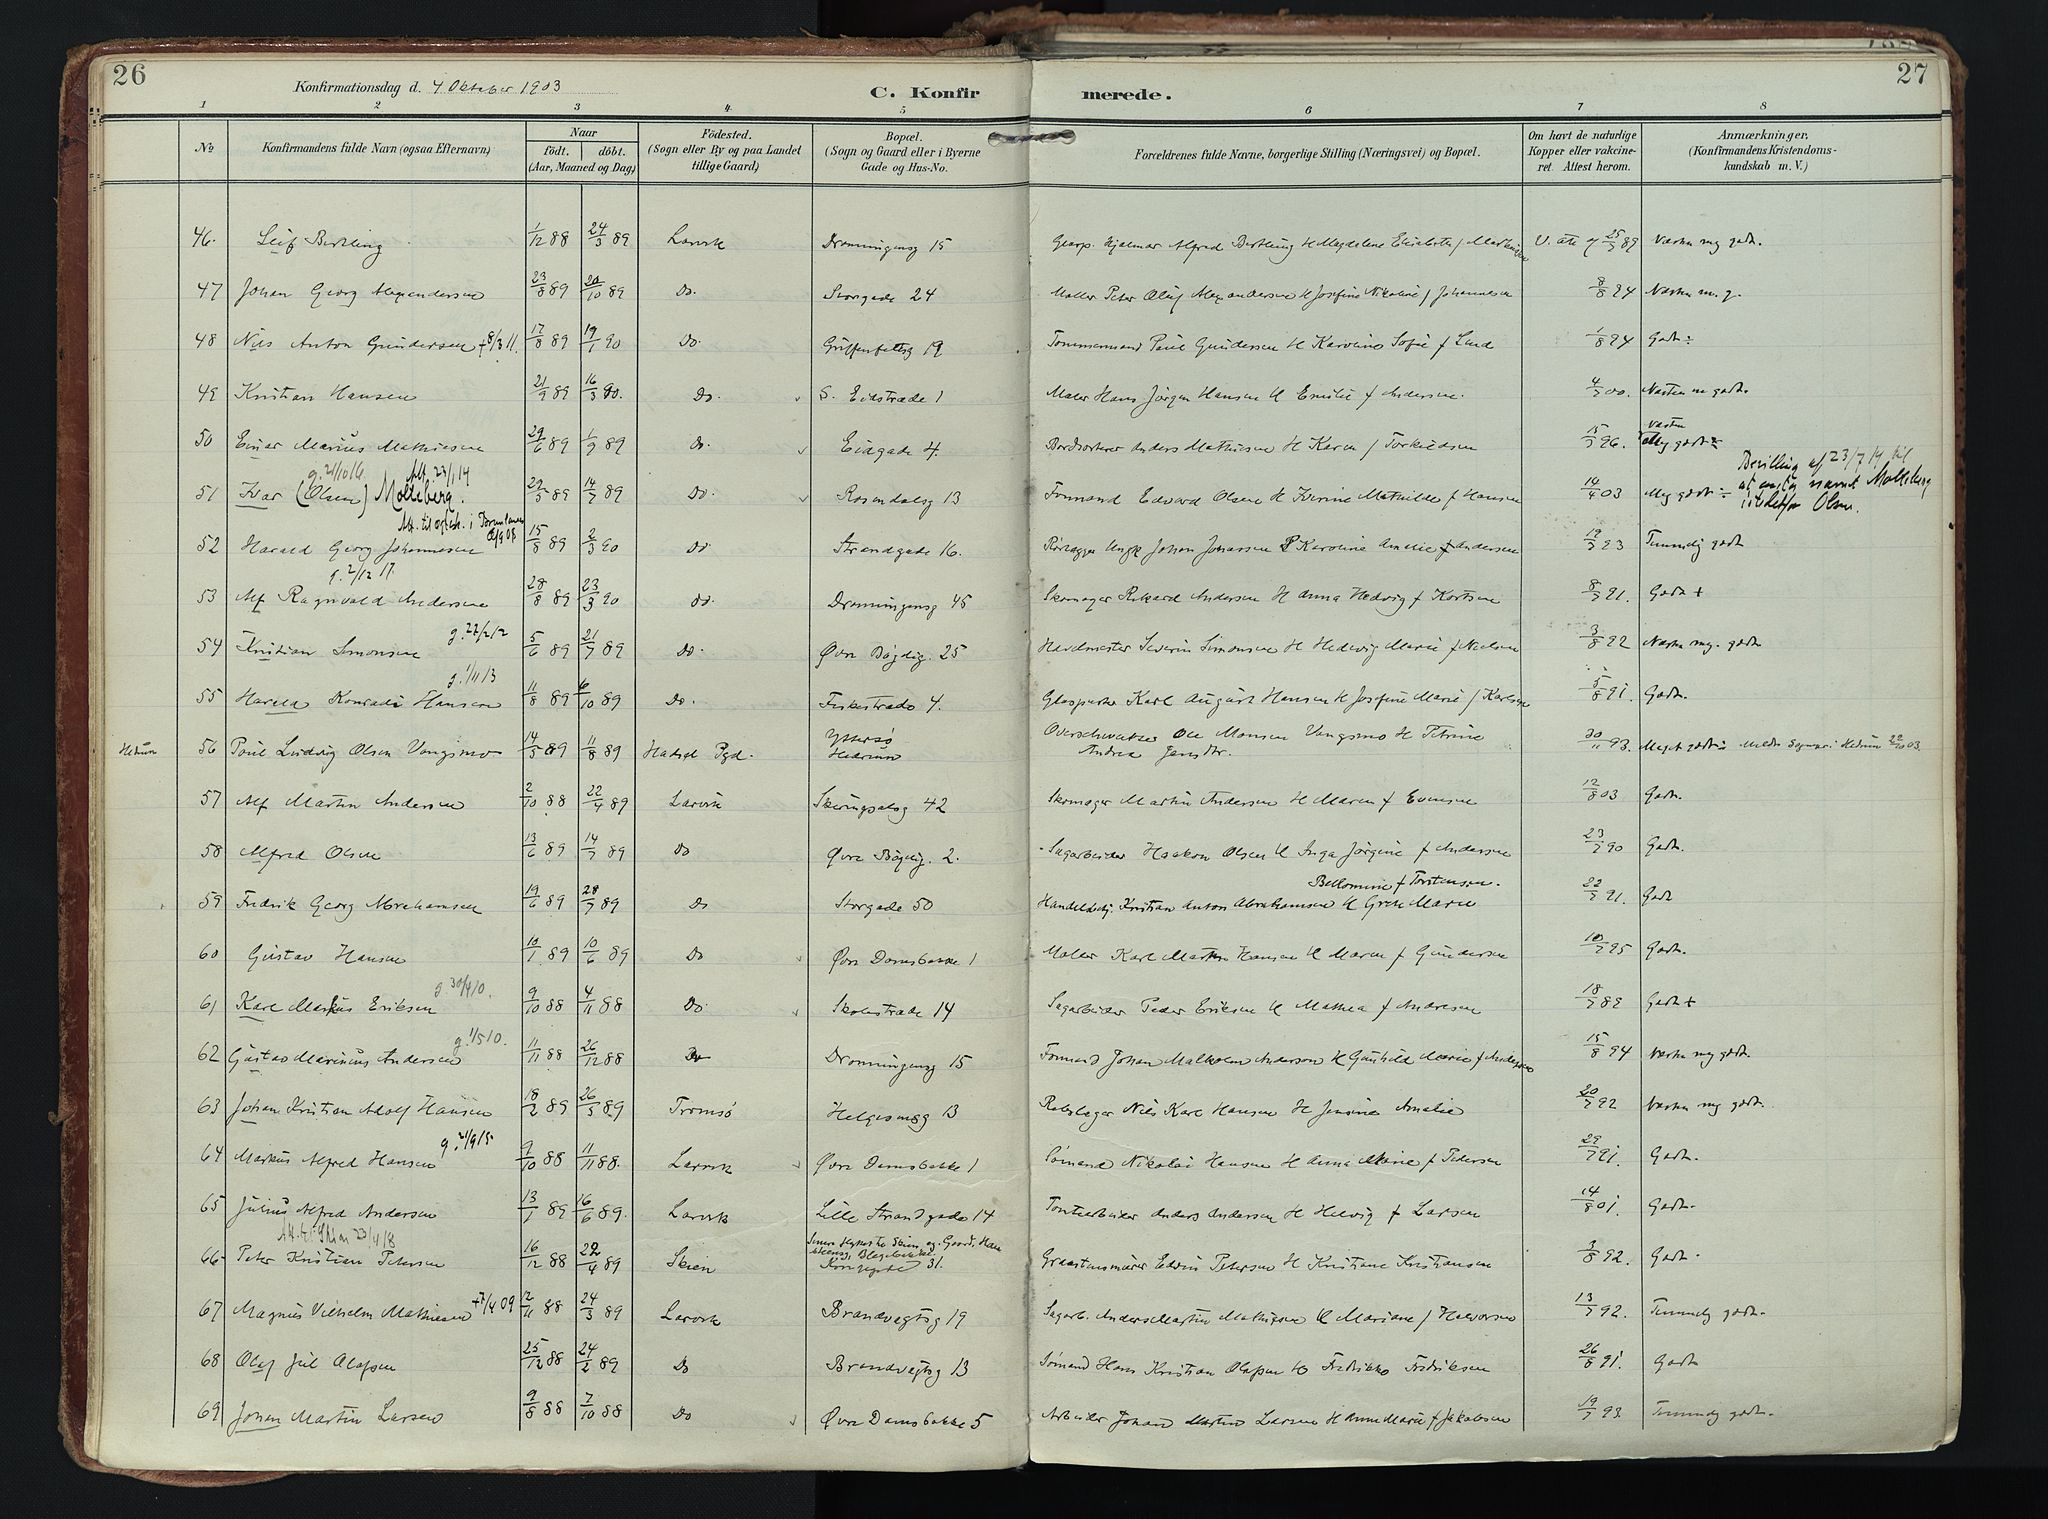 26
27
Konfirmationsdag d. 4 Oktober 1903
C. Konfirmerede.
1 2 3 4 5 6 7 8
No
Konfirmandens fulde Navn (ogsaa Efternavn)
Naar
født. døbt.
(Aar, Maaned og Dag)
Fødested.
(Sogn eller By og paa Landet
tillige Gaard)
Bopæl.
(Sogn og Gaard eller i Byerne
Gade og Hus-No.
Forældrenes fulde Navne, borgerlige Stilling (Næringsvei) og Bopæl.
Om havt de naturlige
Kopper eller vakcine-
ret. Attest herom.
Anmærkninger,
(Konfirmandens Kristendoms-
kundskab m. V.)
46. Leif Bertling 1/12 88 24/3 89 Larvik Dronningensg 15 Hjalmar Alfred Bertling & Magdalene Elisabeth 25/7 89 Næsten meg godt.
47 Johan Georg Alexandersen 23/8 89 20/10 89 Do. Storgade 24 Maler Peter Oluf Alexandersen & Josefine Nikoline f Johannesen 8/8 94 Næsten m. g.
48 Nils Anton Gundersen † 8/3 11. 17/8 89 19/1 90 Do. Griffenfeltsg 19 Tømmermand Paul Gundersen & Karoline Sofie f Lund 1/8 94 Godt ÷
49 Kristian Hansen 21/9 89 16/3 90. Do. S. Eikstræde 1 Maler Hans Jørgen Hansen & Emilie f Andersen. 4/7 00. Næsten m godt.
50 Einar Marius Mathiesen 29/6 89 1/9 89 Do. Eidgade 4. Anders Mathiesen & Karen f Torkildsen 15/7 96. Næsten Meg godt
g. 21/10 16. Att. 23/1 14
51 Ivar (Olsen) Molteberg. 29/5 89 14/7 89 Do. Rosendalsg 13 Formand Edvard Olsen & Iverine Mathilde f Hansen 14/4 03 Meg godt ÷ Bevilling af 23/7 14 til at antage navnet Molteberg istedetfor Olsen.
Att. til ægtesk. i Brunlanes
52 Harald Georg Johannesen 15/8 89 2/3 90 Do Strandgade 16. Johan Johansen & Karoline Amalie f Andersen 19/7 93 Temmelig godt
g. 2/12 17.
53 Alf Ragnvald Andersen 28/8 89 23/3 90 Do. Dronningensg 45 Skomager Rikard Andersen & Anna Hedvig f Kortsen 8/7 91. Godt +
g. 22/2 12
54 Kristian Simonsen 5/6 89 21/7 89 Do. Øvre Bøgelig. 25 Severin Simonsen & Hedevig Marie f Nielsen 3/8 92 Næsten meg. godt
g. 1/11 13
55 Harald Konradi Hansen 11/8 89 6/10 89 Do. Fiskestræde 4. Glaspuster Karl August Hansen & Josefine Marie f Karlsen 5/8 91. Godt.
Hedrum 56 Paul Ludvig Olsen Vangsmo 14/5 89 11/8 89 Hadsel Pgd. Yttersø Hedrum Ole Monsen Vangsmo & Petrine Andrea Jensdtr. 30/11 93. Meget godt Hedrum 22/10 03.
57 Alf Martin Andersen 2/10 88 22/4 89 Larvik Skiringsalsg 42 Skomager Martin Andersen & Maren f Evensen 12/8 03 Godt.
58 Alfred Olsen 13/6 89 14/7 89 Do Øvre Bøgelig. 2. Sagarbeider Haakon Olsen & Inga Jørgine f Andersen 23/7 90 Godt.
59 Fredrik Georg Abrahamsen 19/6 89 28/7 89 Do Storgade 50 Kristian Anton Abrahamsen & Grete Marie Bellomine f Torstensen. 22/7 91. Godt
60 Gustav Hansen 10/1 89 10/6 89 Do Øvre Damsbakke 1 Maler Karl Martin Hansen & Maren f Gundersen 10/7 95 Godt.
g. 30/4 10.
61 Karl Markus Eriksen 9/10 88 4/11 88 Do. Skolestræde 14 Sagarbeider Peder Eriksen & Mathea f Andresen 18/7 89 Godt +
g. 1/5 10.
62 Gustav Marinius Andersen 11/11 88 26/12 88 Do Dronningensg 15 Formand Johan Malkolm Anderson & Gunhild Marie f Andersen 15/8 94 Næsten meg godt.
63 Johan Kristian Adolf Hansen 18/2 89 26/5 89 Tromsø Helgesensg 13 Rebslager Nils Karl Hansen & Jensine Amalie 20/7 92 Næsten meg godt.
g. 21/9 15
64 Markus Alfred Hansen 9/10 88 11/11 88. Larvik Øvre Damsbakke 1 Sømand Nikolai Hansen & Anna Marie f Pedersen 29/7 91. Godt.
65 Julius Alfred Andersen 13/1 89 16/6 89. Larvik Lille Strandgade 14 Tomtearbeider Anders Andersen & Helvig f Larsen 14/8 01. Godt.
Att. til Skien 23/4 18
66 Peter Kristian Petersen 16/12 88 22/4 89 Skien Kongegade 31. Graastensmurer Edvin Petersen & Kristiane Kristiansen 3/8 92. Godt.
67 Magnus Vilhelm Mathiesen † 7/4 09 12/11 88 24/3 89 Larvik Brandvegtsg 19 Sagarb. Anders Martin Mathiesen & Mariane f Halvorsen 13/7 92. Temmelig godt.
68 Olaf Juel Olafsen 25/12 88 24/2 89 Do Brandvegtsg 13 Sømand Hans Kristian Olafsen & Fredrikke Fredriksen 26/8 91. Godt
69 Johan Martin Larsen 9/8 88 7/10 88 Do Øvre Damsbakke 5 Arbeider Johan Martin Larsen & Anne Marie f Jakobsen 19/7 93. Temmelig godt.